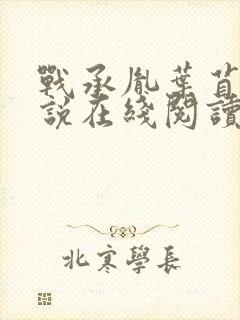 戰承胤葉苜
說在綫閱讀
北寒學長